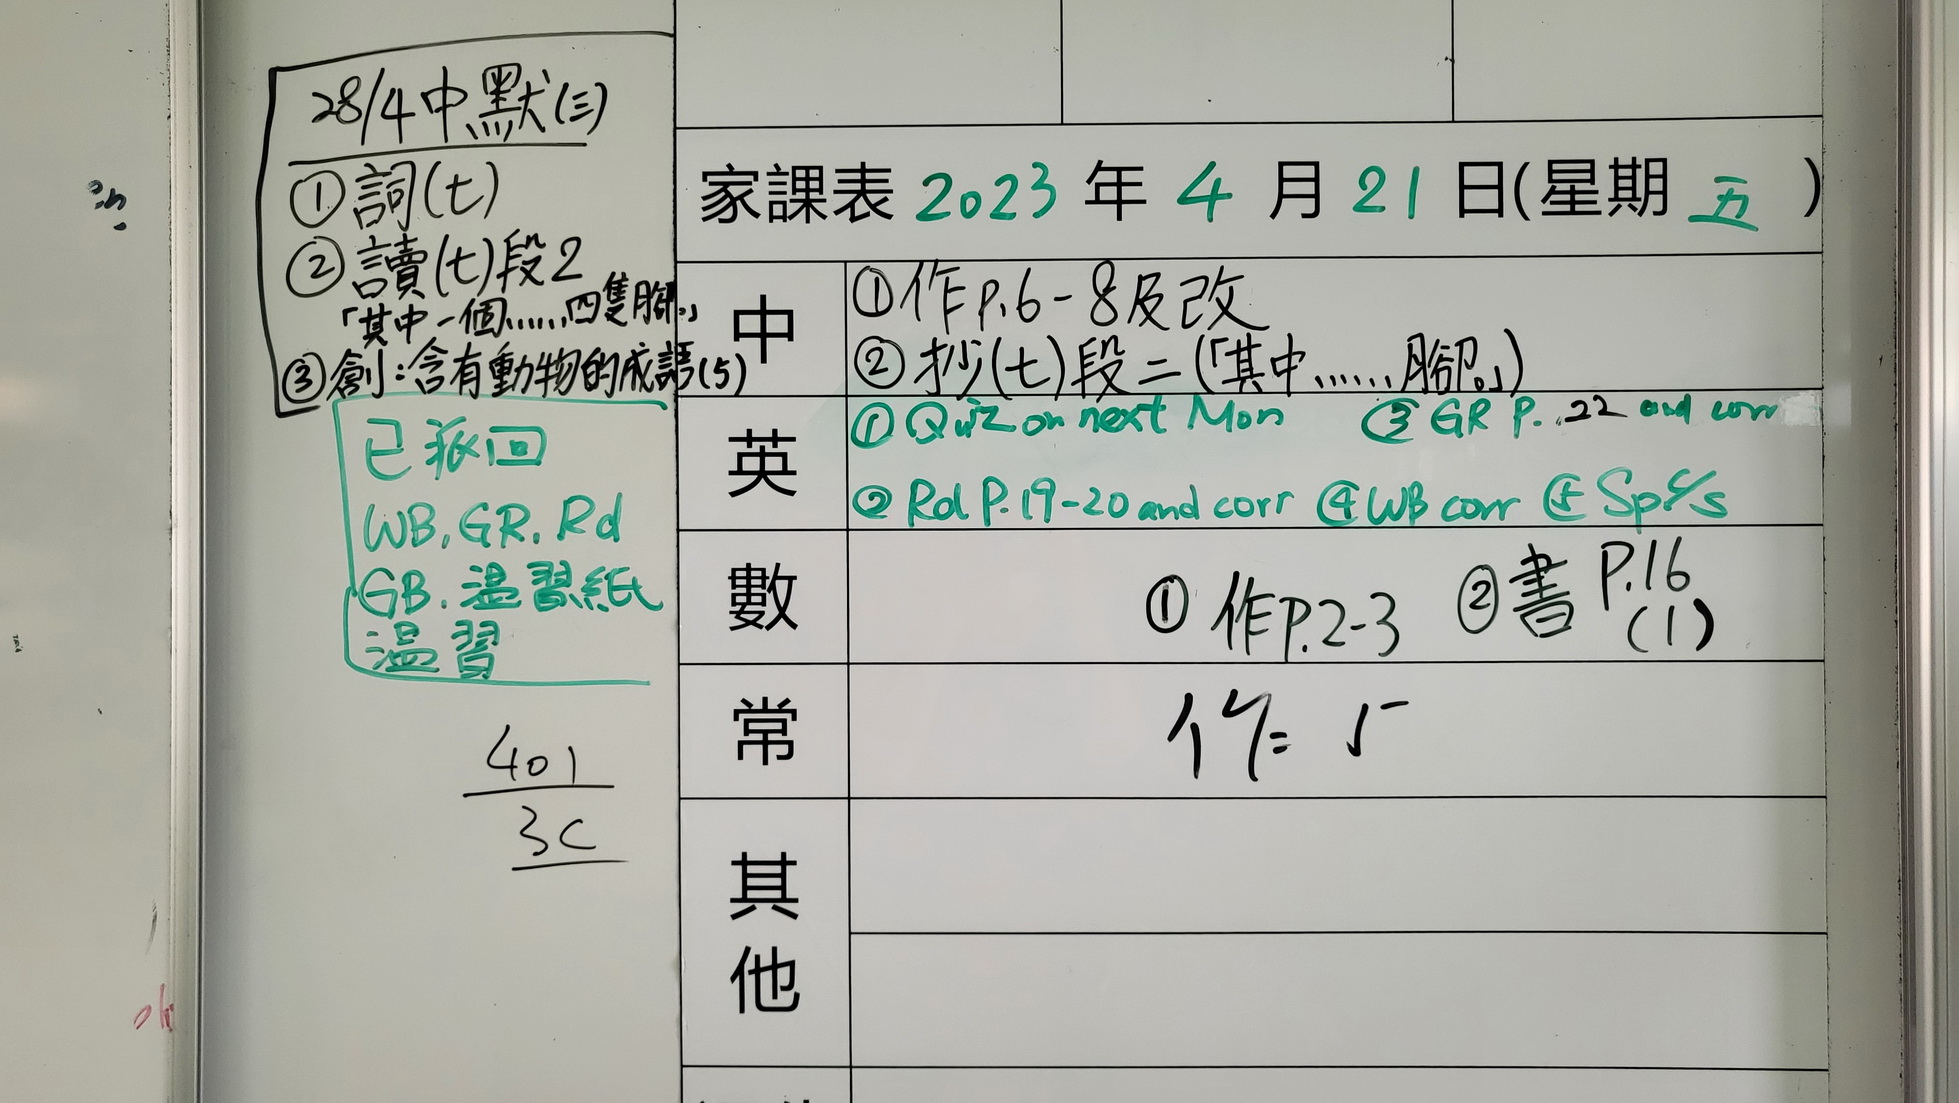 28/4中默(三)
①詞(七)
②讀(七)段2
「其中一個......四隻腳。」
③創:含有動物的成語(5)
已派回
WB.GR.Rd
GB.溫習紙
溫習
401
3C
家課表 2023 年 4 月 21 日(星期 五 )
中
①作P.6-8及改
②抄(七)段二(「其中......腳。」)
英
①Quiz on next Mon ③GR P.22 and corr
②Rd P.19-20 and corr ④WB corr ⑤Sp c/s
數
①作P.2-3 ②書P.16
(1)
常
其他
ok